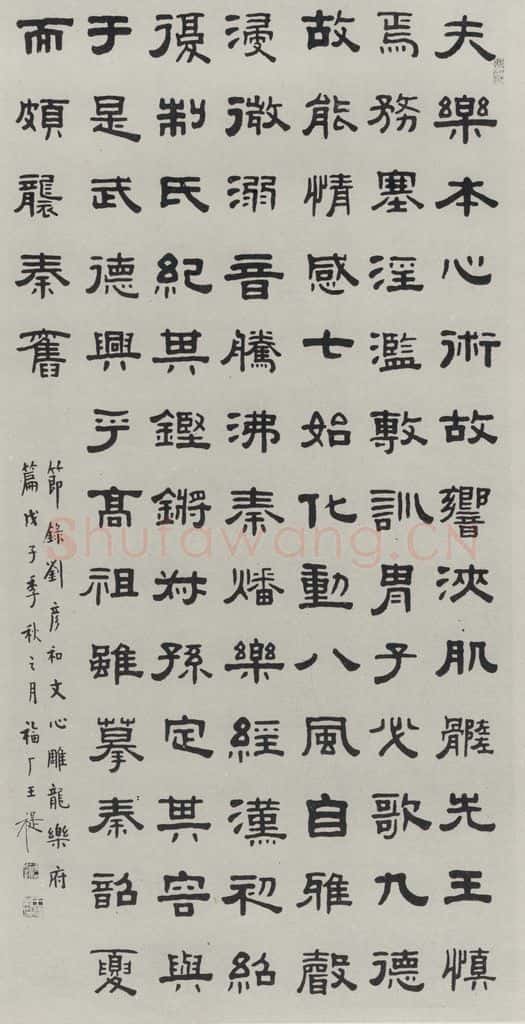 夫樂本心術故響浹肌髓先王慎
焉務塞淫濫敷訓胄子必歌九德
故能情感七始化動八風自雅聲
浸微溺音騰沸秦燔樂經漢初紹
復制氏紀其鏗鏘叔孫定其容與
于是武德興乎高祖雖摹秦韶夏
而頗襲秦舊
節錄劉彥和文心雕龍樂府
篇戊子季秋之月福厂王禔
Shufawang.CN